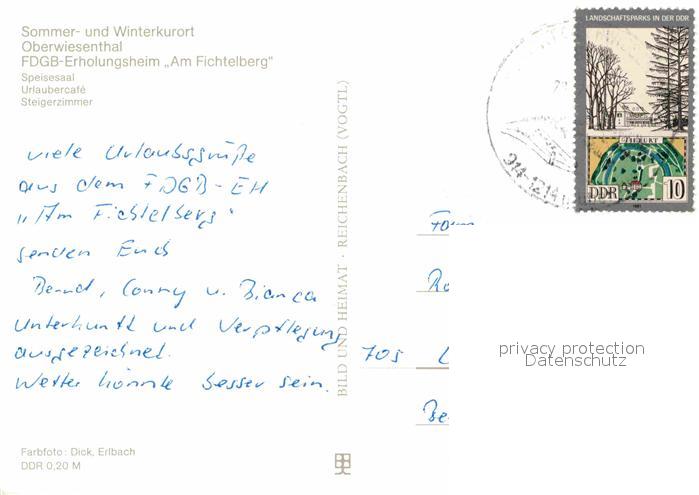 Sommer- und Winterkurort
Oberwiesenthal
FDGB-Erholungsheim „Am Fichtelberg“
Speisesaal
Urlaubercafé
Steigerzimmer
viele Urlaubsgrüße
aus dem FDGB-EH
„Am Fichtelberg“
senden Euch
Bernd, Conny u. Bianca
Unterkunft und Verpflegung
ausgezeichnet.
Wetter könnte besser sein.
Farbfoto: Dick, Erlbach
DDR 0,20 M
BILD UND HEIMAT · REICHENBACH (VOGTL)
LANDSCHAFTSPARKS IN DER DDR
TIEFURT
DDR 10
1981
705
privacy protection
Datenschutz